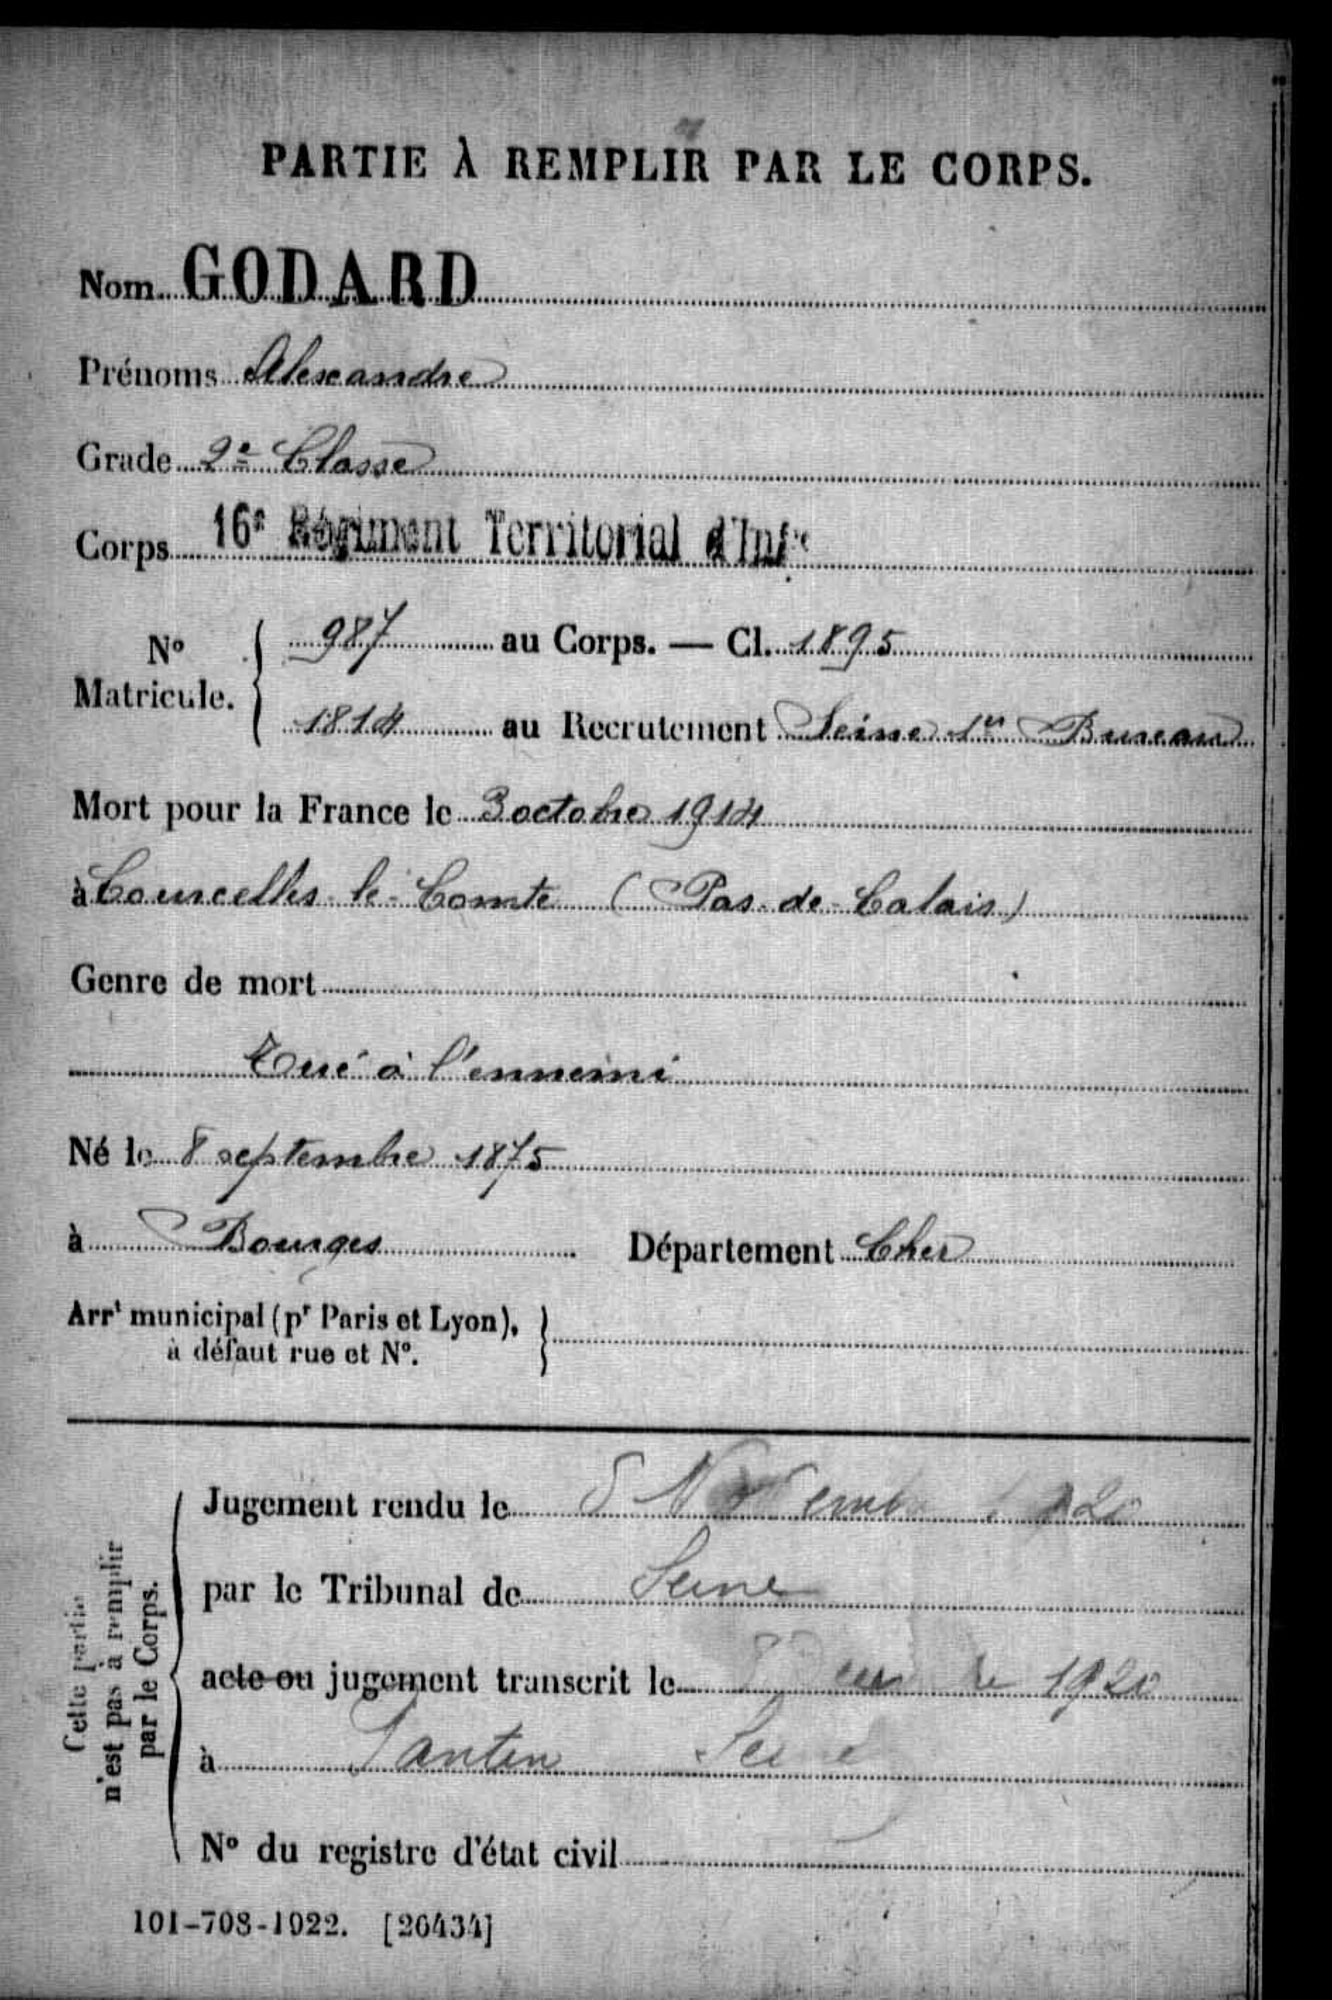 PARTIE À REMPLIR PAR LE CORPS.
Nom GODARD
Prénoms Alexandre
Grade 2e Classe
Corps 16e Régiment Territorial d'Infie
No Matricule. { 987 au Corps. — Cl. 1895
1814 au Recrutement Seine 1er Bureau
Mort pour la France le 3 octobre 1914
à Courcelles-le-Comte (Pas-de-Calais)
Genre de mort
Tué à l'ennemi
Né le 8 septembre 1875
à Bourges Département Cher
Arrt municipal (pr Paris et Lyon),
à défaut rue et No.
Cette partie
n'est pas à remplir
par le Corps.
Jugement rendu le 5 Novembre 1920
par le Tribunal de Seine
acte ou jugement transcrit le 1920
à Pantin Seine
No du registre d'état civil
101-708-1922. [26434]